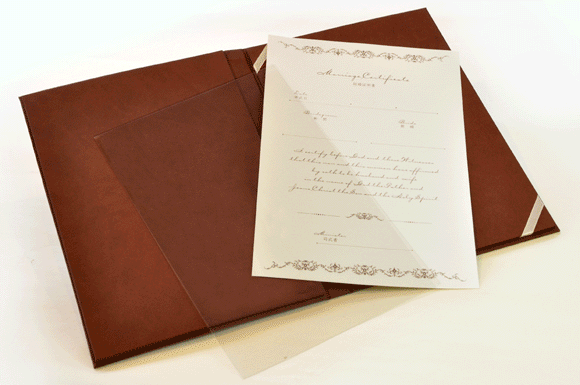 Marriage Certificate
結婚証明書
Date
Bridegroom
Bride
I certify before God and these Witnesses
that this man and this woman have affirmed
by oath to be husband and wife
in the name of God the Father and
Jesus Christ the Son and the Holy Spirit
Minister